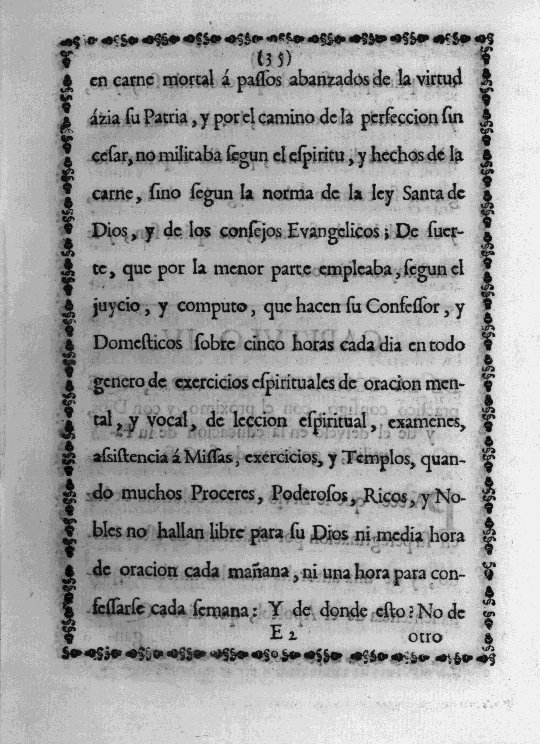 (35)
en carne mortal á paſſos abanzados de la virtud
ázia ſu Patria, y por el camino de la perfeccion ſin
ceſar, no militaba ſegun el eſpiritu, y hechos de la
carne, ſino ſegun la norma de la ley Santa de
Dios, y de los conſejos Evangelicos; De ſuer-
te, que por la menor parte empleaba, ſegun el
juycio, y computo, que hacen ſu Confeſſor, y
Domeſticos ſobre cinco horas cada dia en todo
genero de exercicios eſpirituales de oracion men-
tal, y vocal, de leccion eſpiritual, examenes,
aſsiſtencia á Miſſas, exercicios, y Templos, quan-
do muchos Proceres, Poderoſos, Ricos, y No-
bles no hallan libre para ſu Dios ni media hora
de oracion cada mañana, ni una hora para con-
feſſarſe cada ſemana: Y de donde eſto? No de
E 2 otro